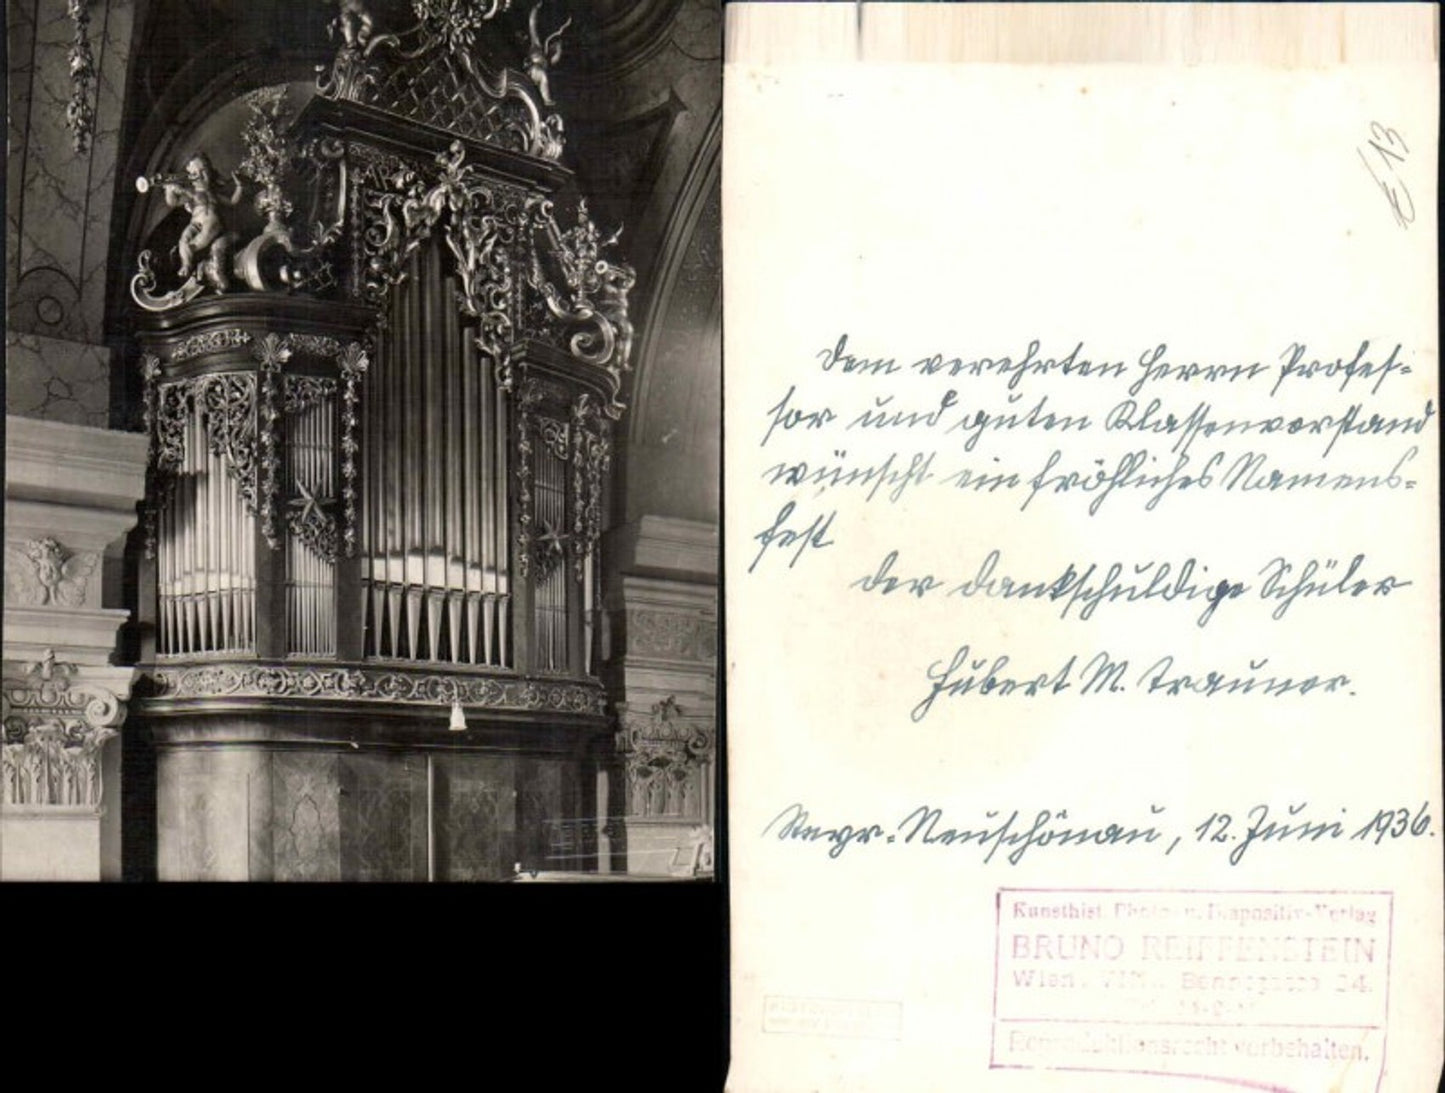 E 13
Dem verehrten Herrn Profes-
sor und guten Klassenvorstand
wünscht ein fröhliches Namens-
fest
der dankschuldige Schüler
Hubert M. Trauner.
Steyr-Neuschönau, 12. Juni 1936.
Kunsthist. Photo- u. Diapositiv-Verlag
BRUNO REIFFENSTEIN
Wien, VIII., Bennogasse 24.
Reproduktionsrecht vorbehalten.